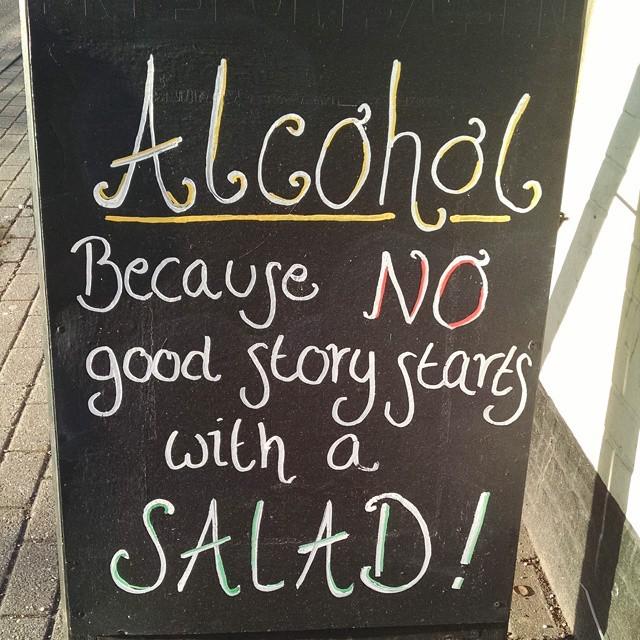 Alcohol
Because NO
good story starts
with a
SALAD!